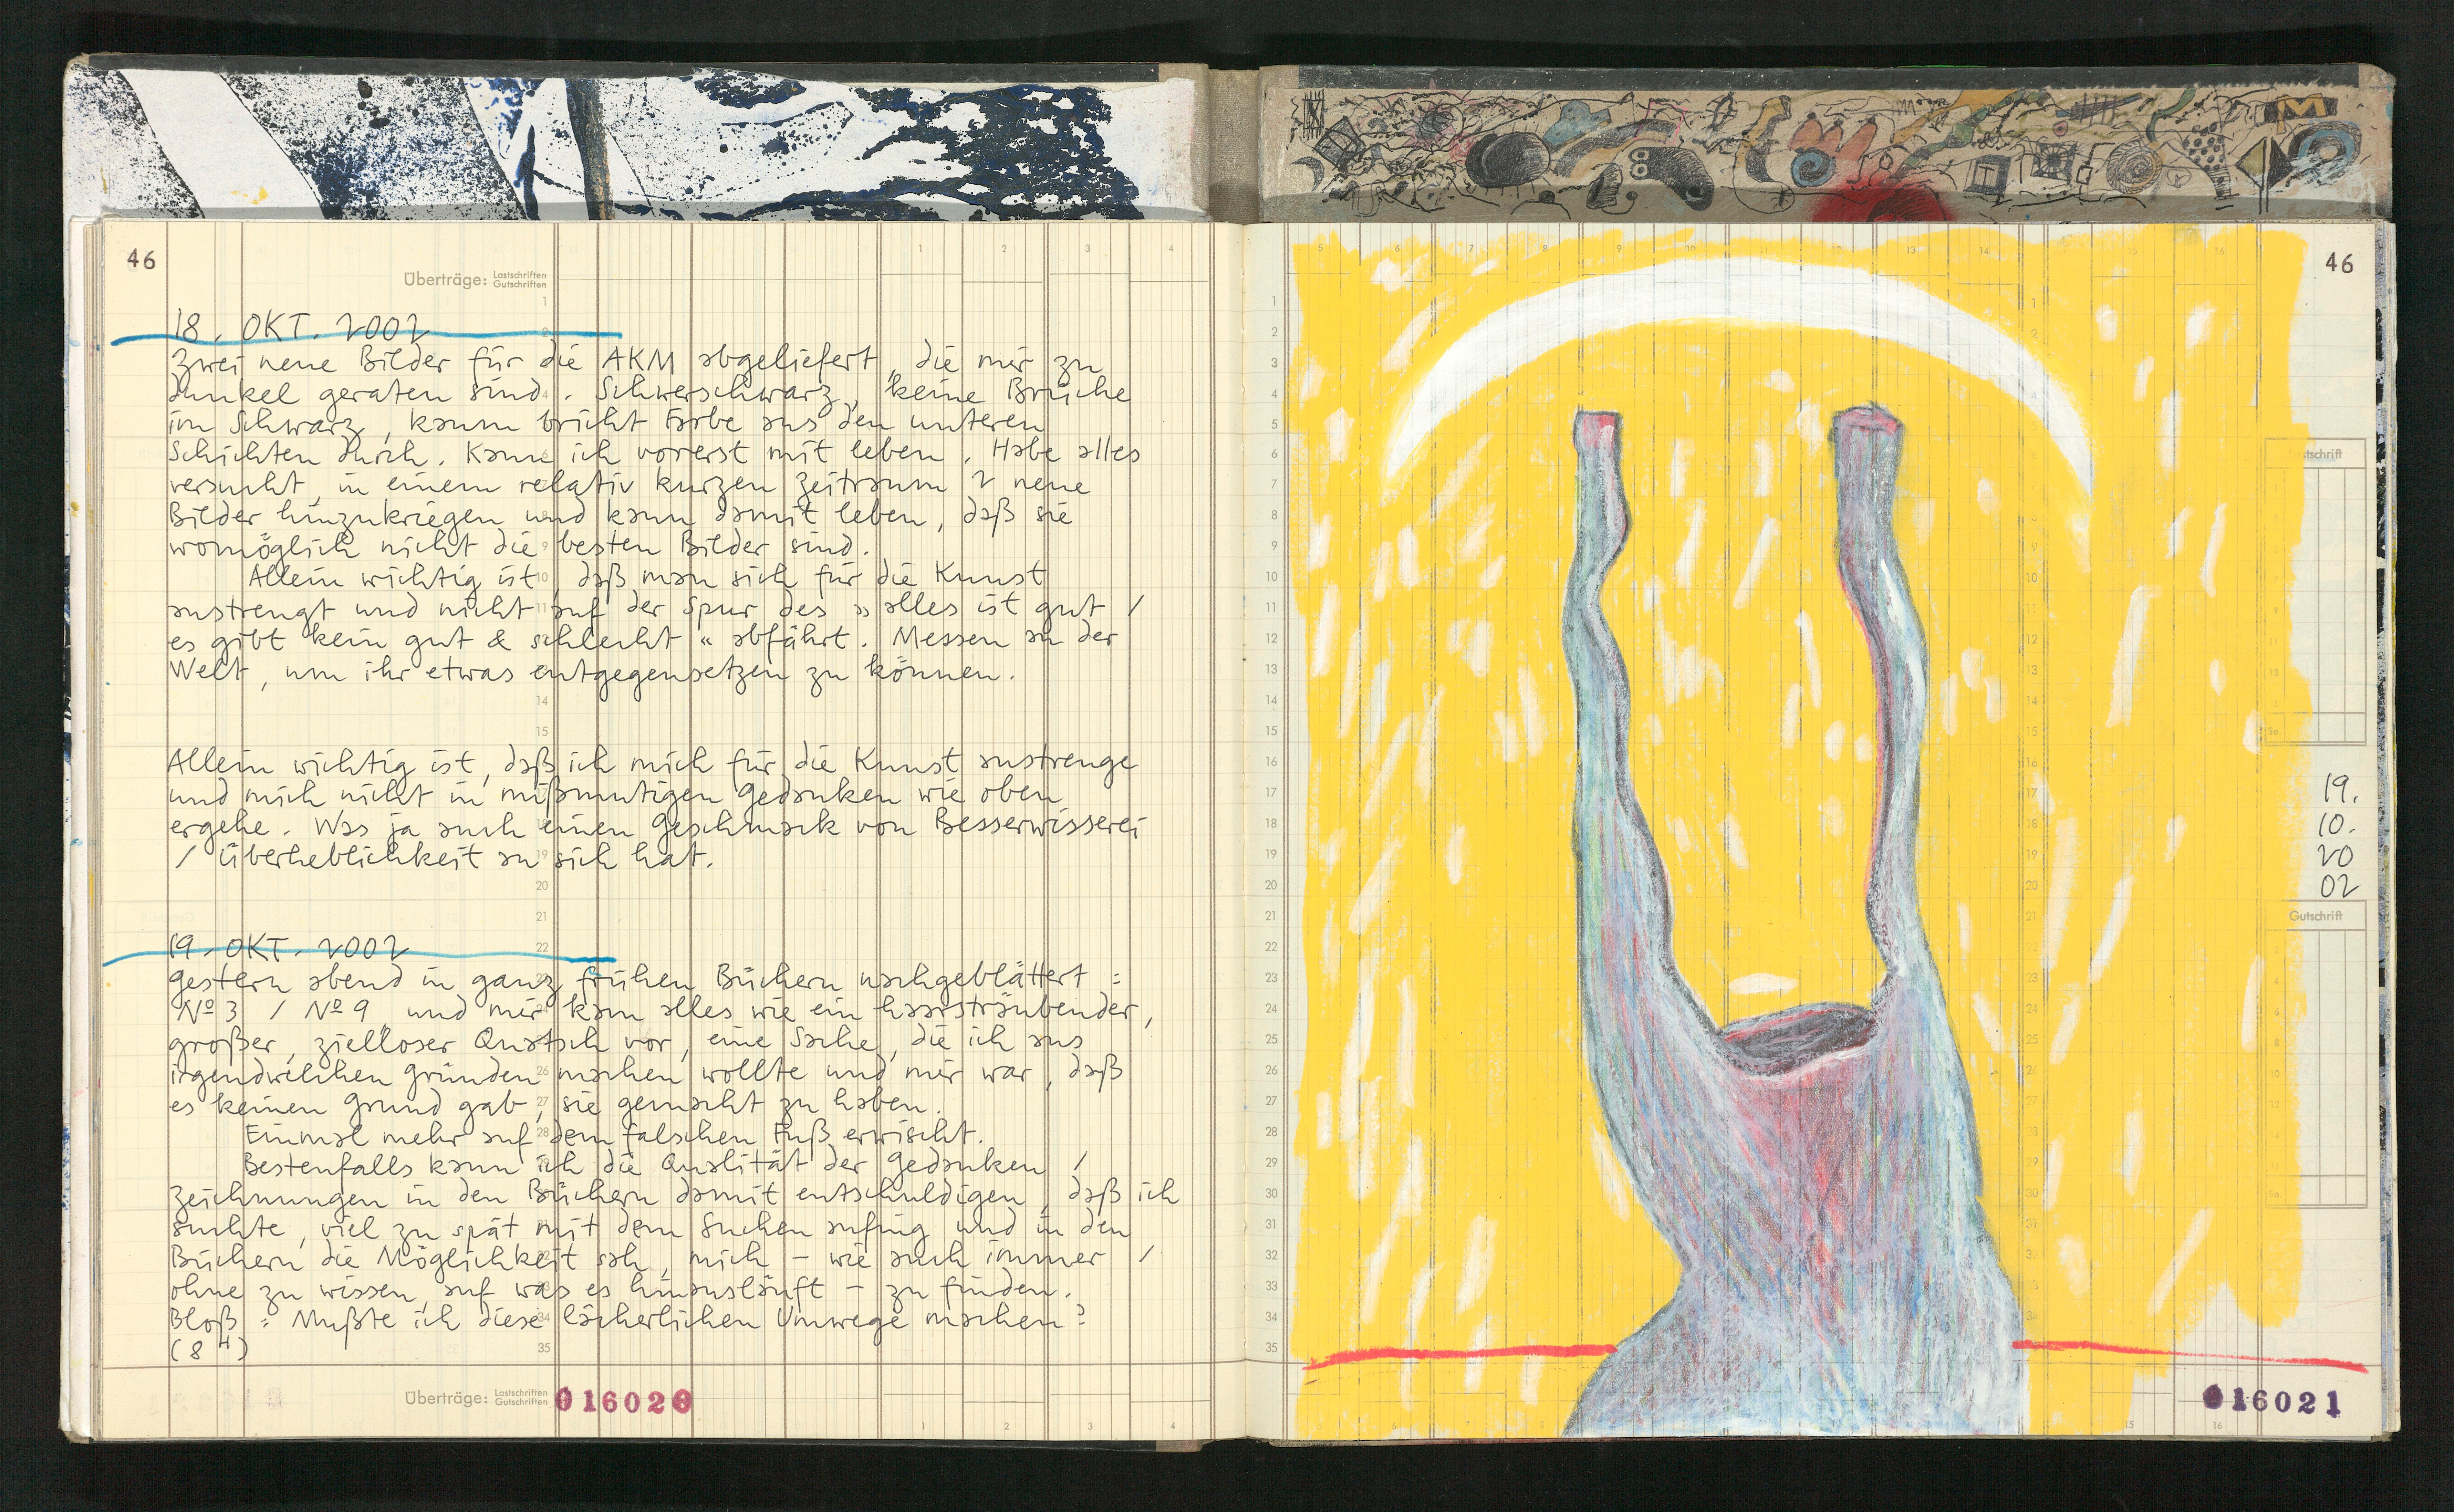 46
Überträge: Lastschriften Gutschriften
18. OKT. 2002
Zwei neue Bilder für die AKM abgeliefert, die mir zu
dunkel geraten sind. Schwerschwarz, keine Brüche
im Schwarz, kaum bricht Farbe aus den unteren
Schichten durch. Kann ich vorerst mit leben. Habe alles
versucht, in einem relativ kurzen Zeitraum 2 neue
Bilder hinzukriegen und kann damit leben, daß sie
womöglich nicht die besten Bilder sind.
Allein wichtig ist, daß man sich für die Kunst
anstrengt und nicht auf der Spur des »alles ist gut /
es gibt kein gut & schlecht« abfährt. Messen an der
Welt, um ihr etwas entgegensetzen zu können.
Allein wichtig ist, daß ich mich für die Kunst anstrenge
und mich nicht in mißmutigen Gedanken wie oben
ergehe. Was ja auch einen Geschmack von Besserwisserei
/ Überheblichkeit an sich hat.
19. OKT. 2002
Gestern abend in ganz frühen Büchern nachgeblättert :
Nº 3 / Nº 9 und mir kam alles wie ein haarsträubender,
großer, zielloser Quatsch vor, eine Sache, die ich aus
irgendwelchen Gründen machen wollte und mir war, daß
es keinen Grund gab, sie gemacht zu haben.
Einmal mehr auf dem falschen Fuß erwischt.
Bestenfalls kann ich die Qualität der Gedanken /
Zeichnungen in den Büchern damit entschuldigen, daß ich
suchte, viel zu spät mit dem Suchen anfing und in den
Büchern die Möglichkeit sah, mich – wie auch immer /
ohne zu wissen, auf was es hinausläuft – zu finden.
Bloß : Mußte ich diese lächerlichen Umwege machen?
(8 H)
Überträge: Lastschriften Gutschriften
016020
46
stschrift
19.
10.
20
02
Gutschrift
016021